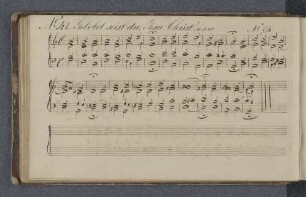 No 41. Gelobet seist du, Jesu Christ. No